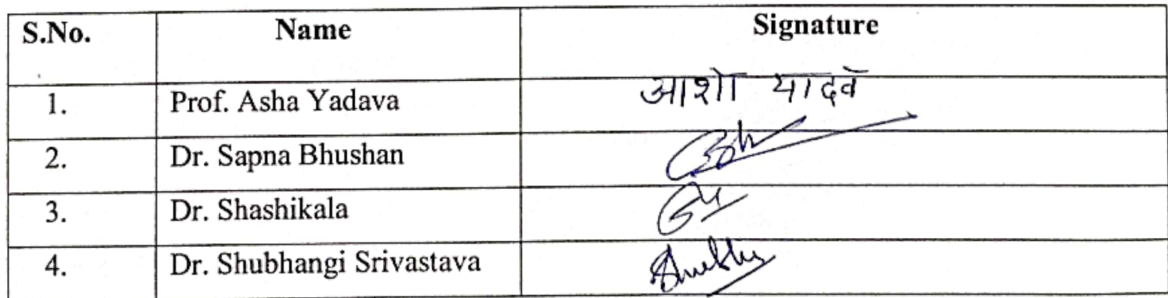 S.No. Name Signature
1. Prof. Asha Yadava आशा यादव
2. Dr. Sapna Bhushan
3. Dr. Shashikala
4. Dr. Shubhangi Srivastava